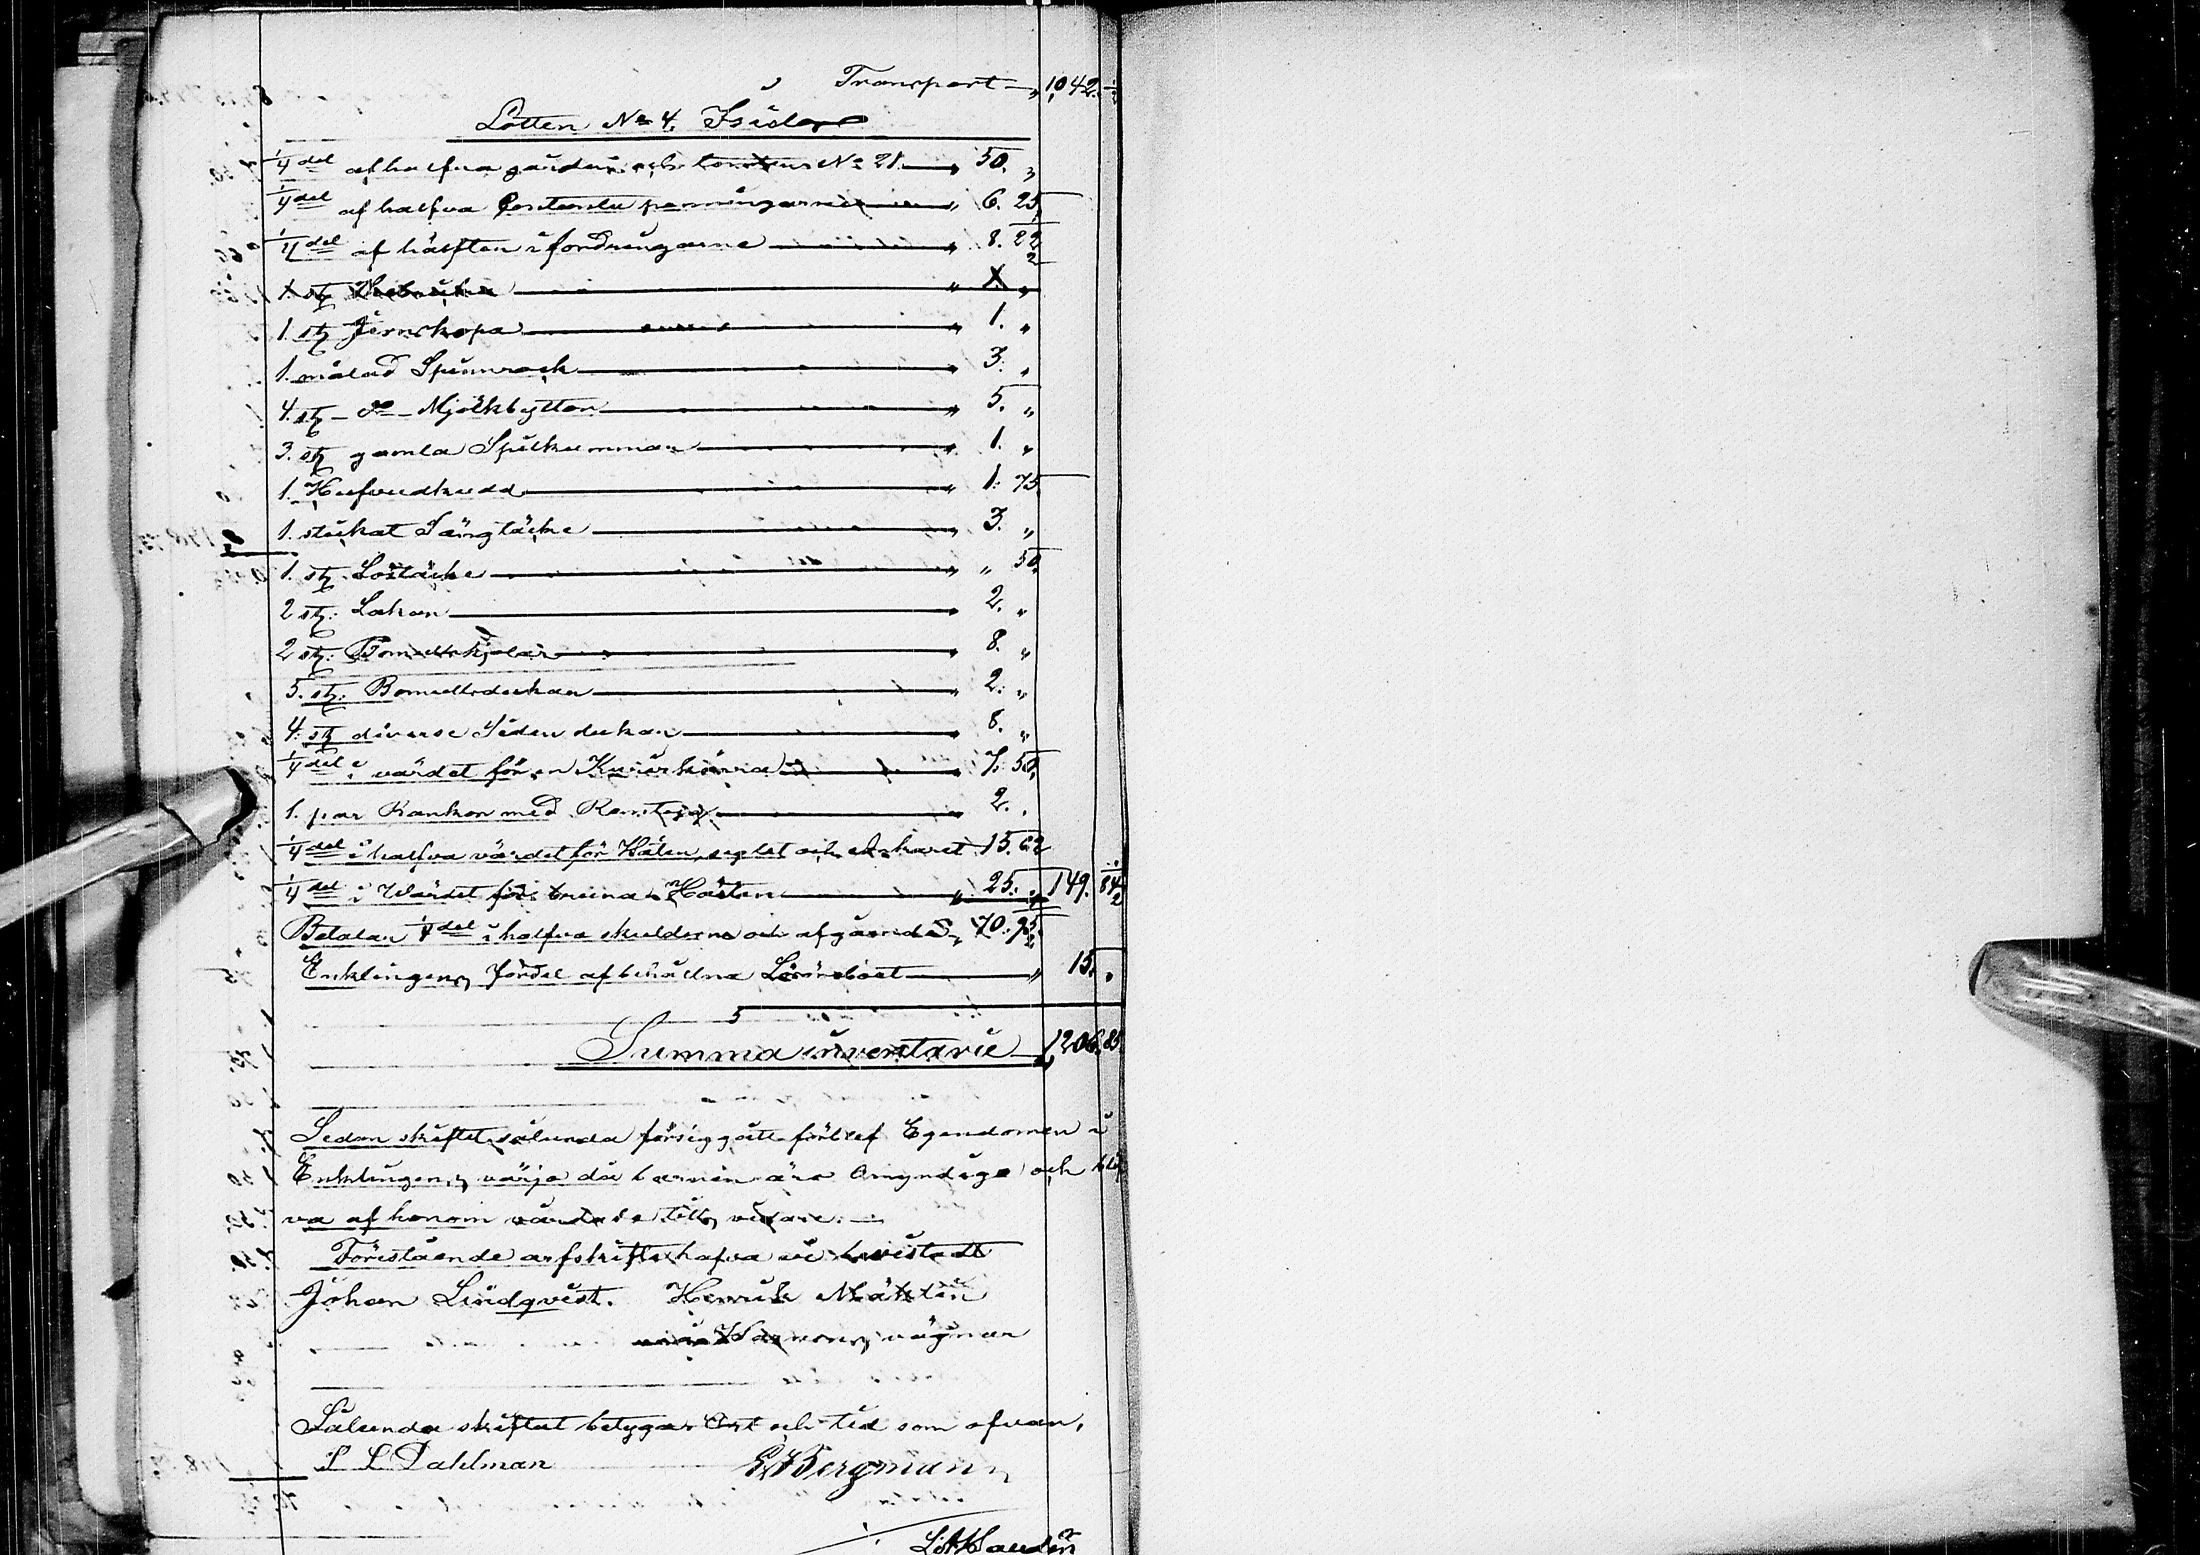 Transport „ 1,042. ½
Lotten No 4. Isidor
1/4del af halfva gården och tomten No 21. „ 50. „
1/4del af halfva Contanta penningarne „ 6. 25.
1/4del af hälften i fordringarne „ 8. 22 ½
1 st „
1 st Jernskopa „ 1. „
1. målad Spinnrock „ 3. „
4. st – do – Mjölkbyttor „ 5. „
3. st gamla Spilkummar „ 1. „
1. Hufvudkudd „ 1. 75.
1. stickat Sängtäcke „ 3. „
1. st. Lostäcke „ „ 50.
2 st. Lakan „ 2. „
2 st. Bomullskjolar „ 8. „
5. st. Bomullsdukar „ 2. „
4. st diverse Siden dukar „ 8. „
1/4del i värdet för en Kurirkärra „ 7. 50.
1. par Rankor med „ 2. „
1/4del i halfva värdet för seglet och ankaret 15. 62
1/4del i Wärdet för bruna Hästen „ 25. „ 149. 84 ½
Betalar 1/4del i halfva skulderna och afgående „ 70. 95 ½
Enklingens fördel af behållna Lösöreboet „ 15. „
Summa inventarie 1,206. 85
Sedan skiftet sålunda försiggått förblef Egendomen i
Enklingens värjo då barnen äro Omyndiga och blif
va af honom vårdade tills vidare. —
Förestående arfskifte hafva vi bevistadt
Johan Lindqvist. Henrik
Barnens vägnar
Sålunda skiftat betygar Ort och tid som ofvan.
Dahlman Bergman